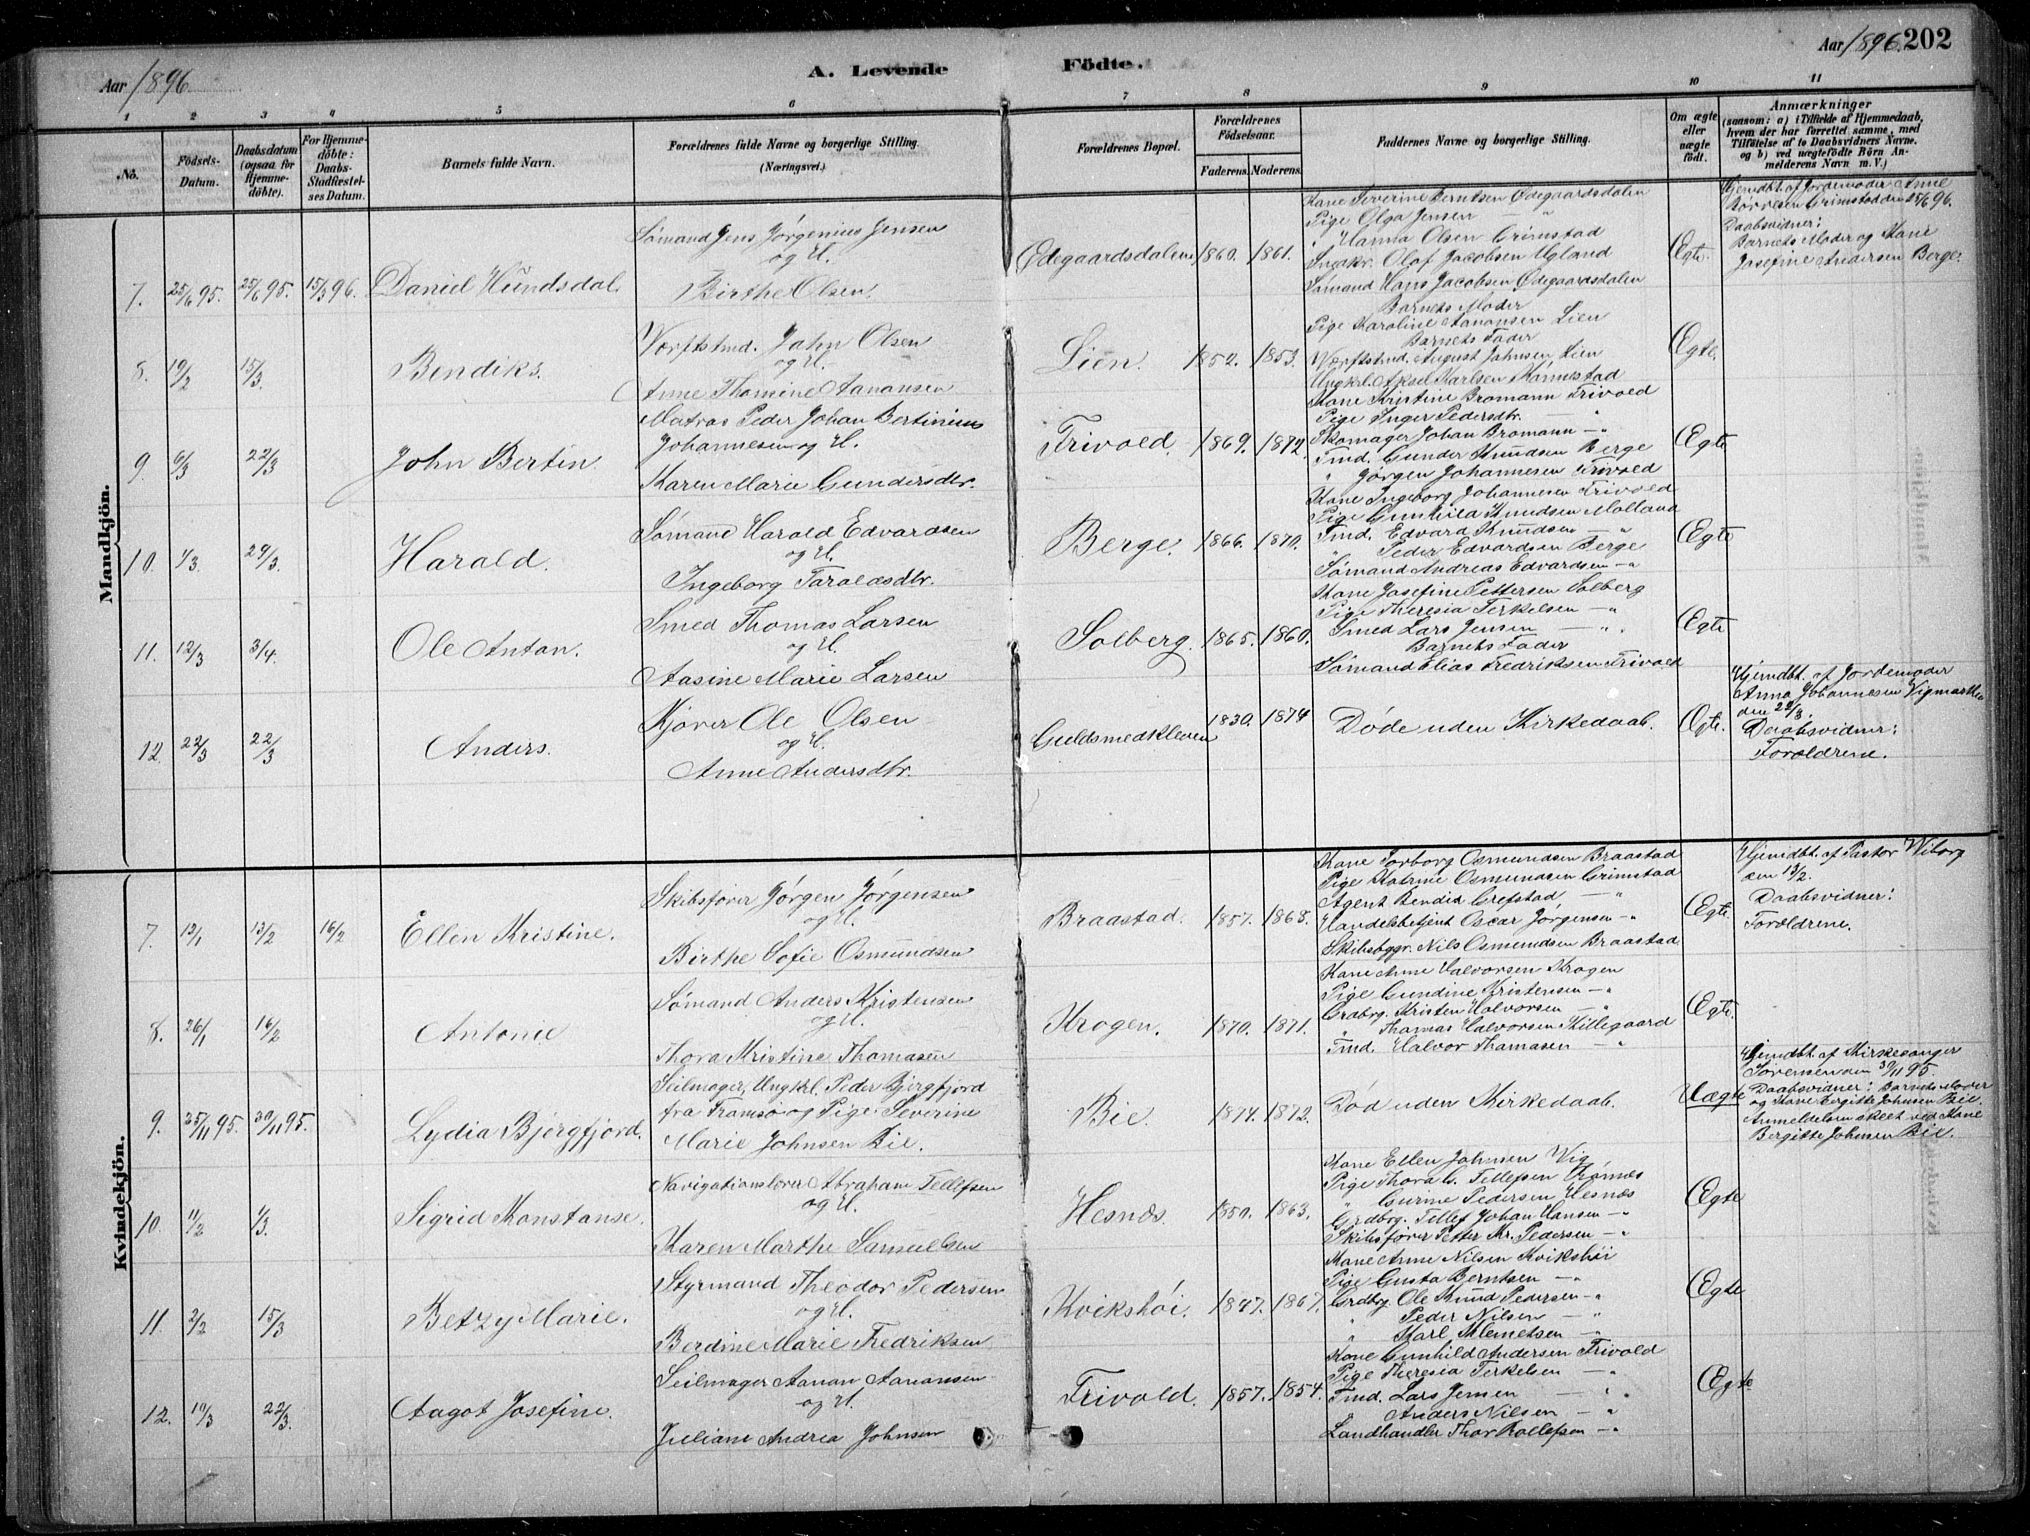 Aar 1896
A. Levende Födte.
Aar 1896. 202
1 2 3 4 5 6 7 8 9 10 11
No.
Födsels-Datum.
Daabsdatum (ogsaa for Hjemme-döbte).
For Hjemme-döbte: Daabs-Stadfæstel-ses Datum.
Barnets fulde Navn.
Forældrenes fulde Navne og borgerlige Stilling. (Næringsvei.)
Forældrenes Bopæl.
Forældrenes Födselsaar.
Faderens. Moderens.
Faddernes Navne og borgerlige Stilling.
Om ægte eller uægte födt.
Anmærkninger
(saasom: a) i Tilfælde af Hjemmedaab, hvem der har forrettet samme, med Tilföielse af to Daabsvidners Navne, og b) ved uægtefödte Börn Anmelderens Navn m. V.)
Mandkjön.
7. 25/6 95. 25/6 95. 15/3 96. Daniel Hundsdal.
Sømand Jens Jørgenius Jensen
og H.
Birthe Olsen.
Ødegaardsdalen 1860. 1861.
Kone Severine Berntsen Ødegaardsdalen
Pige Olga Jensen — "
" Hanna Olsen Grimstad
Ungkr. Olaf Jacobsen Ugland
Sømand Hans Jacobsen Ødegaardsdalen
Barnets Moder
Egte.
Hjemdbt. af Jordemoder Anne
Grimstad den 25/6 96.
Daabsvidner:
Barnets Moder og Kone
Josefine Andersen Berge.
8. 19/2 15/3. Bendiks.
Værftstmd. John Olsen
og H.
Anne Thomine Aanonsen
Lien. 1852. 1853.
Pige Karoline Aanonsen Lien
Barnets Fader
Værftstmd. August Johnsen Lien
Ungkrl. Aksel Karlsen Rønnestad
Egte.
9. 6/3 22/3 John Bertin.
Matros Peder Johan Bertinius
Johannesen og H.
Karen Marie Gundersdtr.
Frivold. 1869. 1872.
Kone Kristine Bromann Frivold
Pige Inger Pedersdtr. — "
Skomager Johan Bromann — "
Tmd. Gunder Knudsen Berge
" Jørgen Johannesen Frivold
Egte
10. 1/3. 29/3. Harald.
Sømand Harald Edvardsen
og H.
Ingeborg Taraldsdtr.
Berge. 1866. 1870.
Kone Ingeborg Johannesen Frivold
Pige Gunhild Knudsen Molland
Tmd. Edvard Knudsen — "
" Peder Edvardsen Berge
Sømand Andreas Edvardsen — "
Egte
11. 12/3 3/4. Ole Anton.
Smed Thomas Larsen
og H.
Aasine Marie Larsen
Solberg. 1865. 1860.
Kone Josefine Pettersen Solberg
Pige Theresia Terkelsen — "
Smed Lars Jensen — "
Barnets Fader
Sømand Elias Fredriksen Frivold
Egte
12. 22/3 22/3 Anders.
Kjører Ole Olsen
og H.
Anne Andersdtr.
Guldsmedkleven 1830. 1874
Døde uden Kirkedaab.
Egte.
Hjemdbt. af Jordemoder
Anna Johannesen Vigmarken
den 22/3.
Daabsvidner:
Forældrene.
Kvindekjön.
7. 12/1 13/2 16/2 Ellen Kristine.
Skibsfører Jørgen Jørgensen
og H.
Birthe Sofie Osmundsen
Braastad. 1857. 1868.
Kone Torborg Osmundsen Braastad
Pige Katrine Osmundsen Grimstad
Agent Bendix Grefstad — "
Handelsbetjent Oscar Jørgensen — "
Skibsbygr. Nils Osmundsen Braastad
Egte
Hjemdbt. af Pastor Wiborg
den 13/2.
Daabsvidner:
Forældrene.
8. 26/1 16/2 Antonie
Sømand Anders Kristensen
og H.
Thora Kristine Thomasen
Krogen. 1870. 1871.
Kone Anne Halvorsen Krogen
Pige Gundine Kristensen — "
Grdbrg. Kristen Halvorsen — "
" Thomas Halvorsen Killegaard
Tmd. Halvor Thomasen — "
Egte.
9. 25/11 95. 30/11 95. Lydia Bjergfjord.
Seilmager, Ungkl. Peder Bjergfjord
fra Tromsø og Pige Severine
Marie Johnsen Bie.
Bie. 1874. 1872.
Død uden Kirkedaab.
Uægte
Hjemdbt. af Kirkesanger
Sørensen den 30/11 95.
Daabsvidner: Barnets Moder
og Kone Bergitte Johnsen Bie.
Anmeldelsen skeet ved Kone
Bergitte Johnsen Bie.
10. 11/2 1/3. Sigrid Konstanse.
Navigationslærer Abraham Tellefsen
og H.
Karen Marthe Samuelsen
Hesnæs. 1850. 1863.
Kone Ellen Johnsen Vig
Pige Thora G. Tellefsen Tromøs
" Gurine Pedersen Hesnæs
Grdbrg. Tellef Johan Hansen — "
Skibsfører Petter Kr. Pedersen — "
Egte
11. 2/2 15/3 Betzy Marie.
Styrmand Theodor Pedersen
og H.
Berdine Marie Fredriksen
Kvikshøi. 1847. 1867.
Kone Anne Nilsen Kvikshøi
Pige Gusta Berntsen — "
Grdbrg. Ole Knud Pedersen — "
" Peder Nilsen — "
" Karl Klemetsen — "
Egte
12. 19/3 22/3. Aagot Josefine.
Seilmager Aanon Aanonsen
og H.
Juliane Andrea Johnsen
Frivold. 1857. 1854.
Kone Gunhild Andersen Frivold
Pige Theresia Terkelsen — "
Tmd. Lars Jensen — "
" Anders Nilsen — "
Landhandler Thor Rollefsen — "
Egte